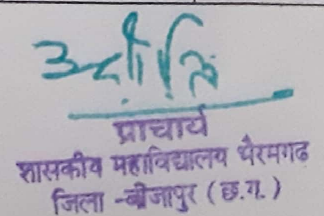 प्राचार्य
शासकीय महाविद्यालय भैरमगढ
जिला -बीजापुर (छ.ग.)